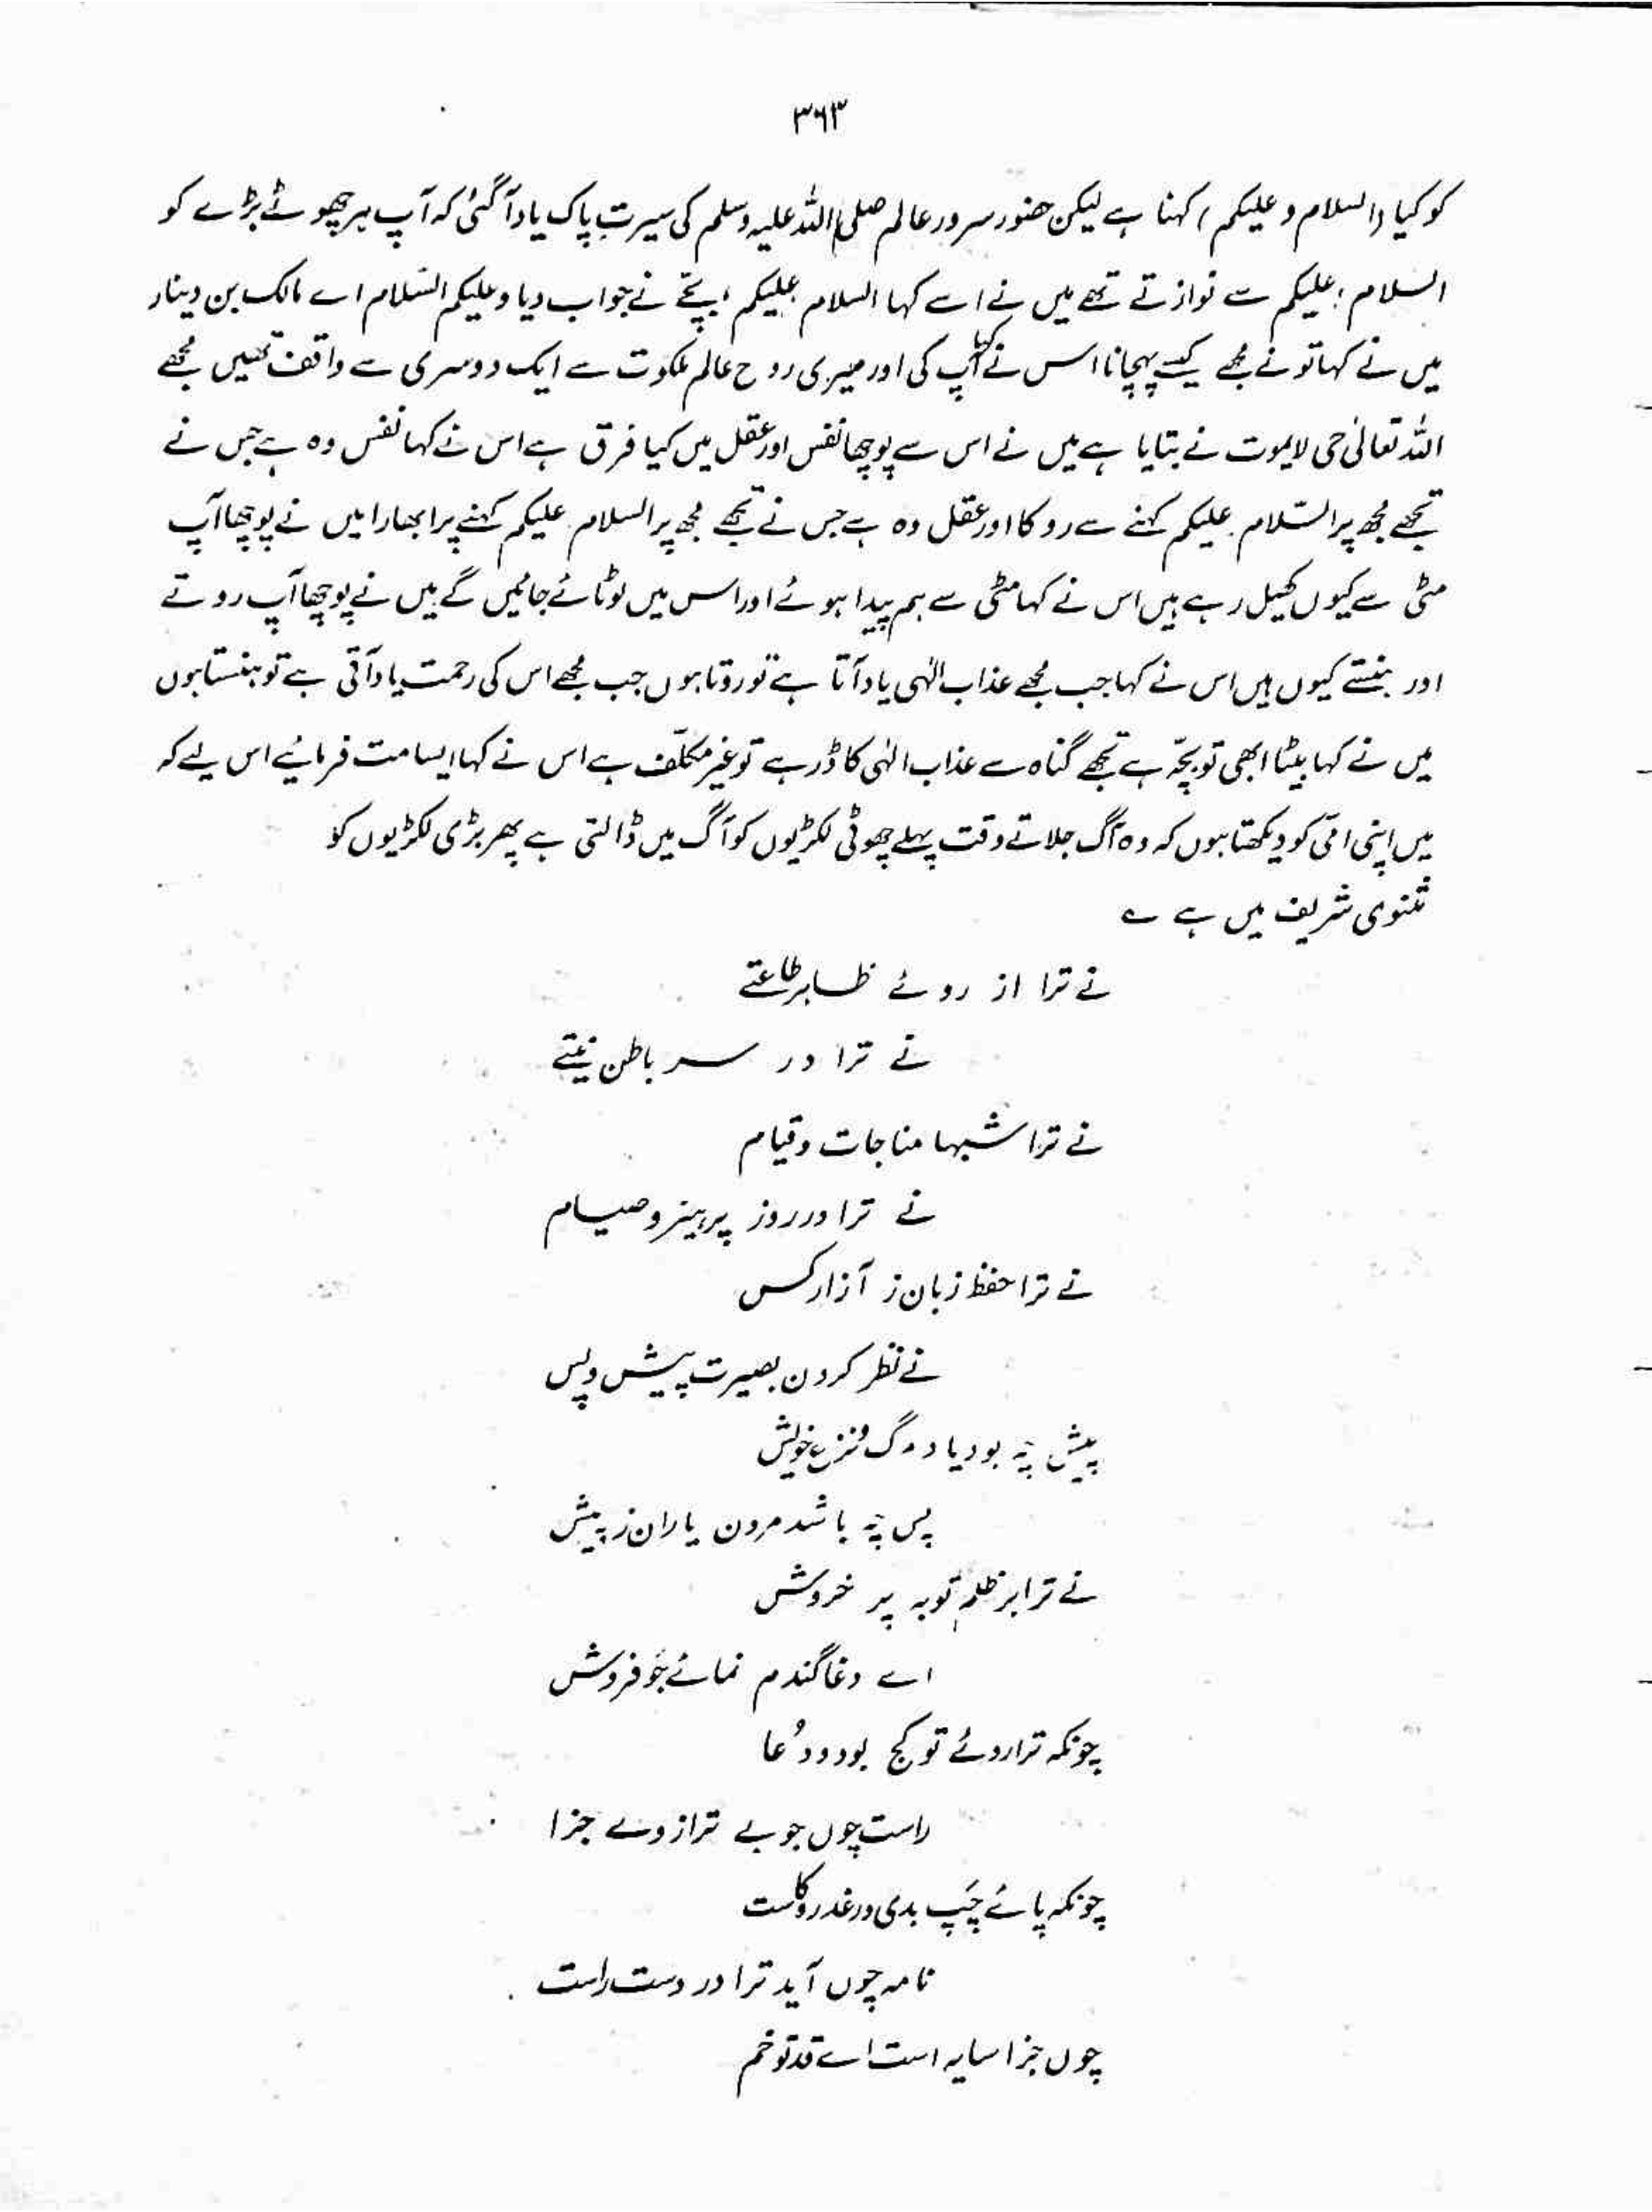 ۳۶۳
کو کیا (السلام و علیکم) کہنا ہے لیکن حضور سرور عالم صلی اللہ علیہ وسلم کی سیرت پاک یاد آ گئی کہ آپ ہر چھوٹے بڑے کو
السلام علیکم سے نوازتے تھے میں نے اسے کہا السلام علیکم، بچے نے جواب دیا وعلیکم السّلام اے مالک بن دینار
میں نے کہا تو نے مجھے کیسے پہچانا اس نے کہا آپ کی اور میری روح عالم ملکوت سے ایک دوسری سے واقف تھیں مجھے
اللہ تعالیٰ حی لایموت نے بتایا ہے میں نے اس سے پوچھا نفس اور عقل میں کیا فرق ہے اس نے کہا نفس وہ ہے جس نے
تجھے مجھ پر السّلام علیکم کہنے سے روکا اور عقل وہ ہے جس نے تجھے مجھ پر السلام علیکم کہنے پر ابھارا میں نے پوچھا آپ
مٹی سے کیوں کھیل رہے ہیں اس نے کہا مٹی سے ہم پیدا ہوئے اور اسس میں لوٹائے جائیں گے میں نے پوچھا آپ روتے
اور ہنستے کیوں ہیں اس نے کہا جب مجھے عذاب الٰہی یاد آتا ہے تو روتا ہوں جب مجھے اس کی رحمت یاد آتی ہے تو ہنستا ہوں
میں نے کہا بیٹا ابھی تو بچّہ ہے تجھے گناہ سے عذاب الٰہی کا ڈر ہے تو غیر مکلّف ہے اس نے کہا ایسا مت فرمائیے اس لیے کہ
میں اپنی امّی کو دیکھتا ہوں کہ وہ آگ جلاتے وقت پہلے چھوٹی لکڑیوں کو آگ میں ڈالتی ہے پھر بڑی لکڑیوں کو
مثنوی شریف میں ہے ؎
نے ترا از روئے ظاہر طاعتے
نے ترا در سر باطن نیتے
نے ترا شبہا مناجات و قیام
نے ترا در روز پرہیز و صیام
نے ترا حفظ زبان ز آزار کس
نے نظر کردن بصیرت پیش و پس
پیش چہ بود یاد مرگ و نزع خویش
پس چہ باشد مردن یاران ز پیش
نے ترا بر ظلم توبہ پر خروش
اے دغا گندم نمائے جَو فروش
چونکہ ترا روئے تو کج بود و دُعا
راست چوں جوبے ترازوے جزا
چونکہ پائے چَپ بدی در غدر و کاست
نامہ چوں آید ترا در دست راست
چوں جزا سایہ است اے قد تو خم